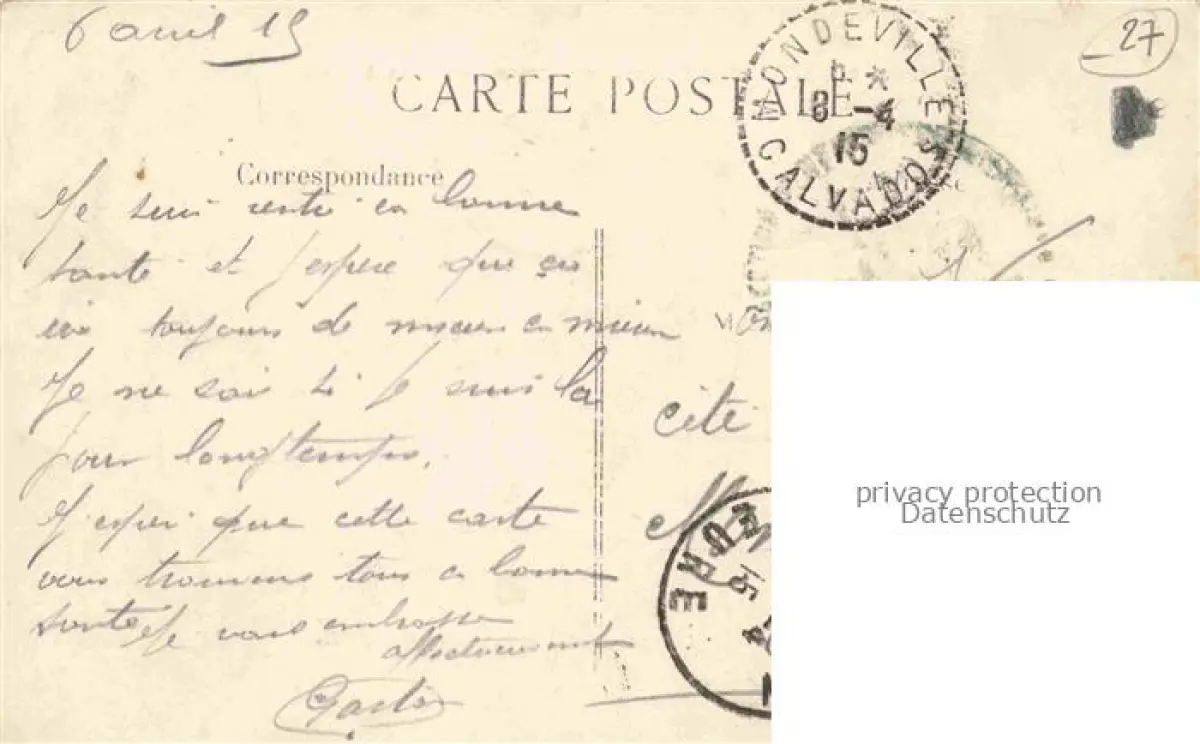 6 avril 15
27
CARTE POSTALE
MONDEVILLE
8 -4
15
CALVADOS
Correspondance
Je suis rentré en bonne
santé et j'espere que ça
va toujours de mieux en mieux
Je ne sais si je suis la
pour longtemps.
J'espere que cette carte
vous trouvera tous en bonne
santé Je vous embrasse
affectueusement
Gaston
cité
EURE
15
privacy protection
Datenschutz